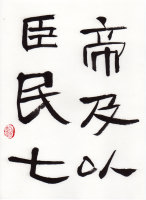 帝及以
臣民七